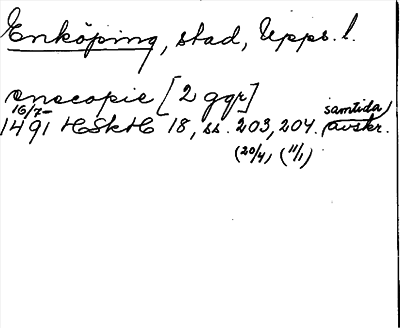 Enköping, stad, Upps. l.
enecopie [2 ggr]
16/7
1491 HSkH 18, ss. 203, 204. samtida avskr.
(20/4) (11/1)